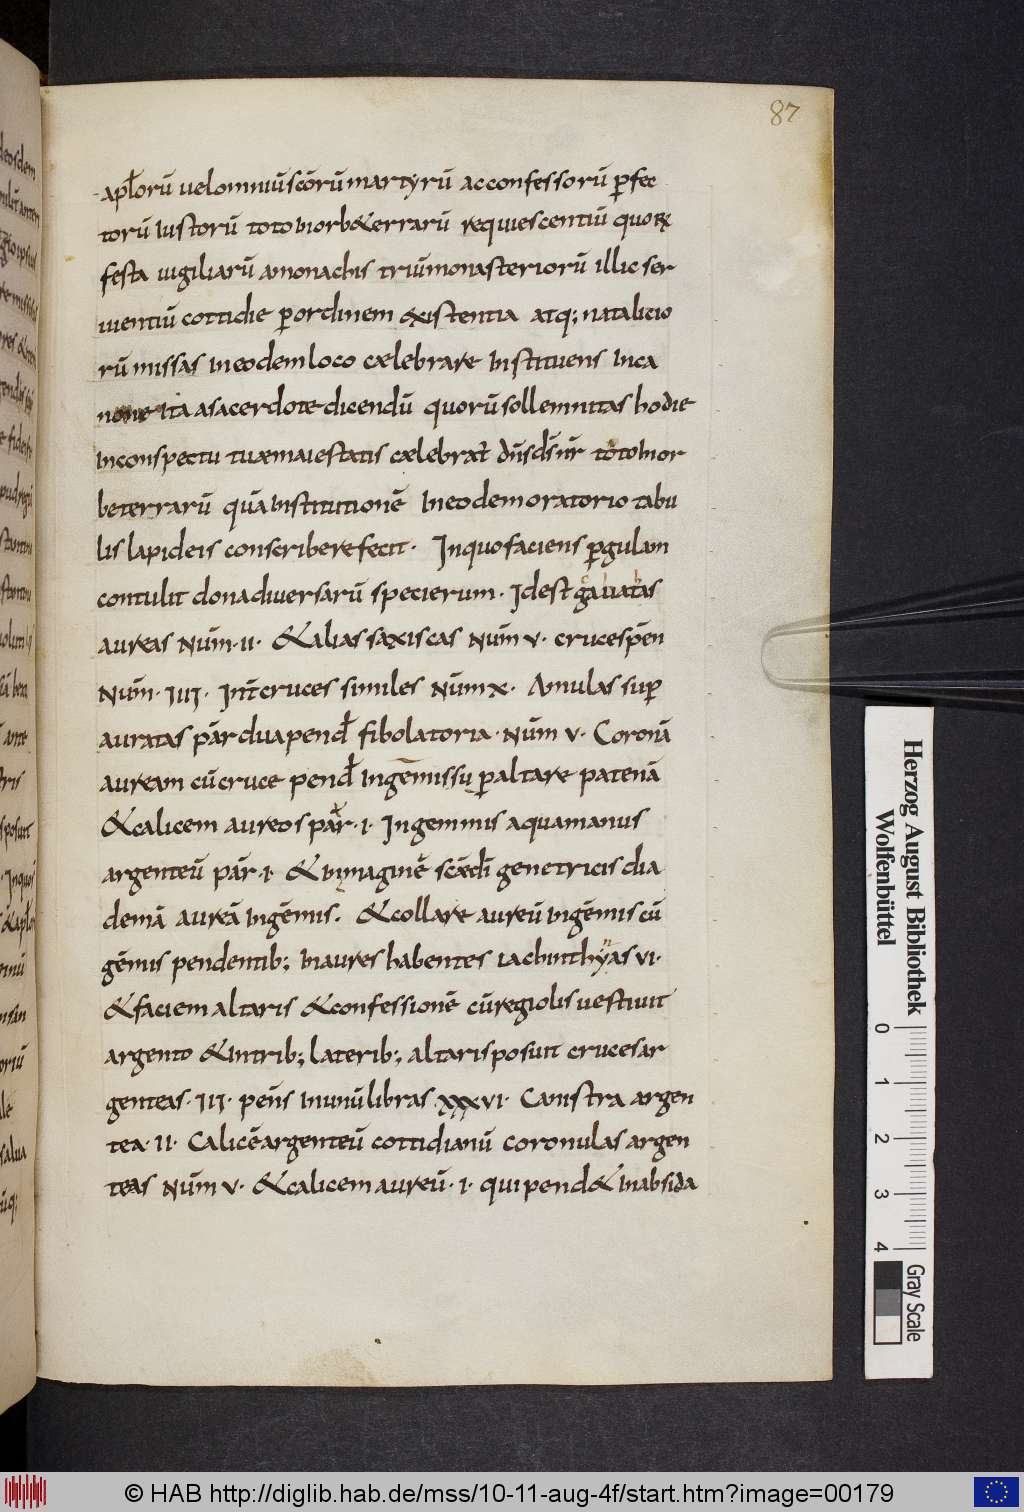 87
apłorū uel omniū scōrū martyrū ac confessorū ꝑfec
torū iustorū toto in orbe terrarū requiescentiū quoꝝ
festa uigiliarū a monachis triū monasteriorū illic ser
uientiū cottidie ꝑ ordinem existentia atq; natalicio
rū missas in eodem loco cælebrare instituens in ca
none ita a sacerdote dicendū quorū sollemnitas hodie
in conspectu tuæ maiestatis cælebrat̄ dn̄s ds̄ nr̄ toto in or
be terrarū quā institutionē in eodem oratorio tabu
lis lapideis conscribere fecit· In quo faciens ꝑgulam
contulit dona diuersarū specierum· Idest gabatas
aureas Nūm·II· & alias saxiscas Nūm V· cruces pēn
Nūm· III· Int̄ cruces similes Nūm X· Amulas suꝑ
auratas pār dua pend̄ fibolatoria· Nūm V· Coronā
auream cū cruce pend̄ in gēmis suꝑ altare patenā
& calicem aureos pār·I· In gemmis aquamanus
argenteū pār·I· & in imaginē scæ dī genetricis dia
demā aureā in gēmis. & collare aureū in gēmis cū
gēmis pendentib; inaures habentes iachinthyas VI·
& faciem altaris & confessionē cū regiolis uestiuit
argento & in trib; laterib; altaris posuit cruces ar
genteas· III· pens̄ in unū libras XXXVI· Canistra argen
tea· II· Calicē argenteū cottidianū coronulas argen
teas Nūm V· & calicem aureū· I· qui pend& in absida
Herzog August Bibliothek
Wolfenbüttel
0 1 2 3 4
Gray Scale
© HAB http://diglib.hab.de/mss/10-11-aug-4f/start.htm?image=00179